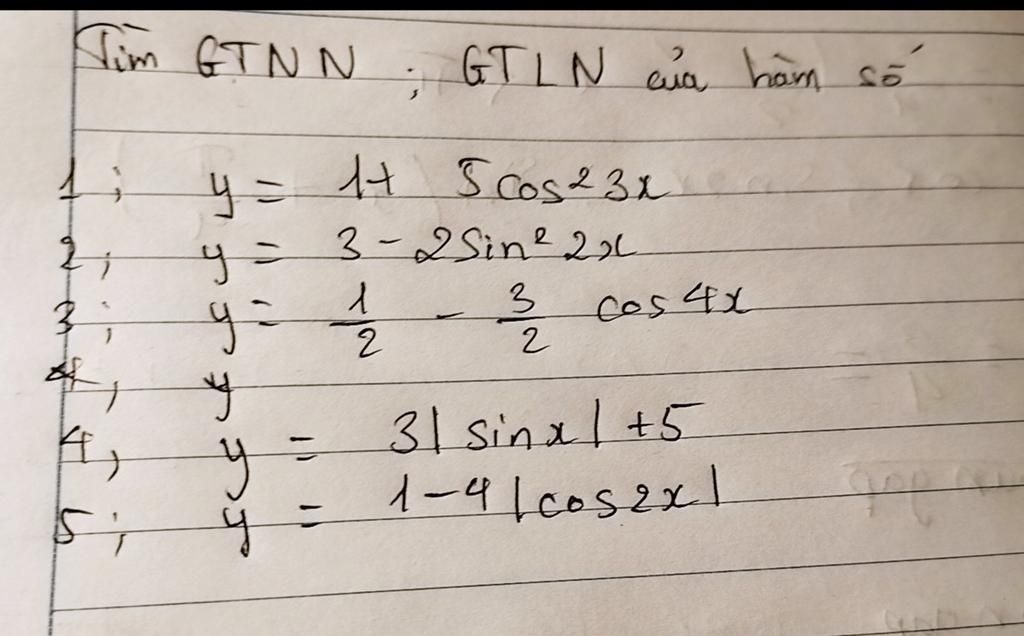 Tìm GTNN ; GTLN của hàm số
1; y = 1+ 5cos²3x
2; y = 3 - 2Sin² 2x
3; y = 1/2 - 3/2 cos 4x
4, y
4, y = 3|sinx| +5
5; y = 1-4|cos2x|